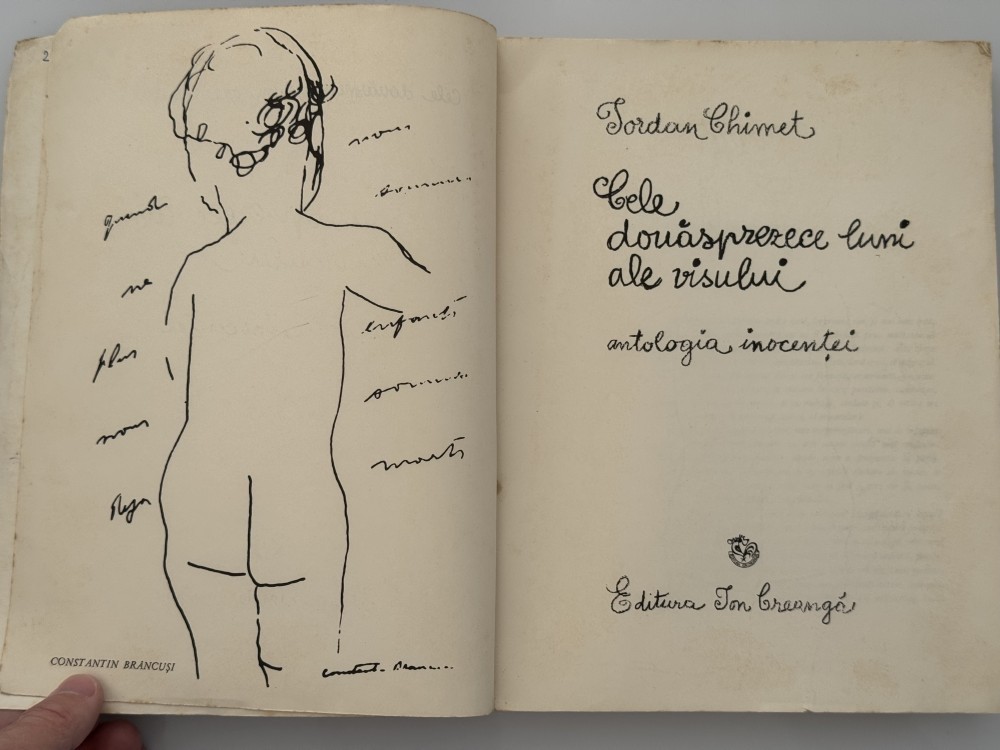 2
quand nous
ne sommes
plus enfants
nous sommes
deja morts
CONSTANTIN BRÂNCUȘI
Iordan Chimet
Cele
douăsprezece luni
ale visului
antologia inocenței
Editura Ion Creangă